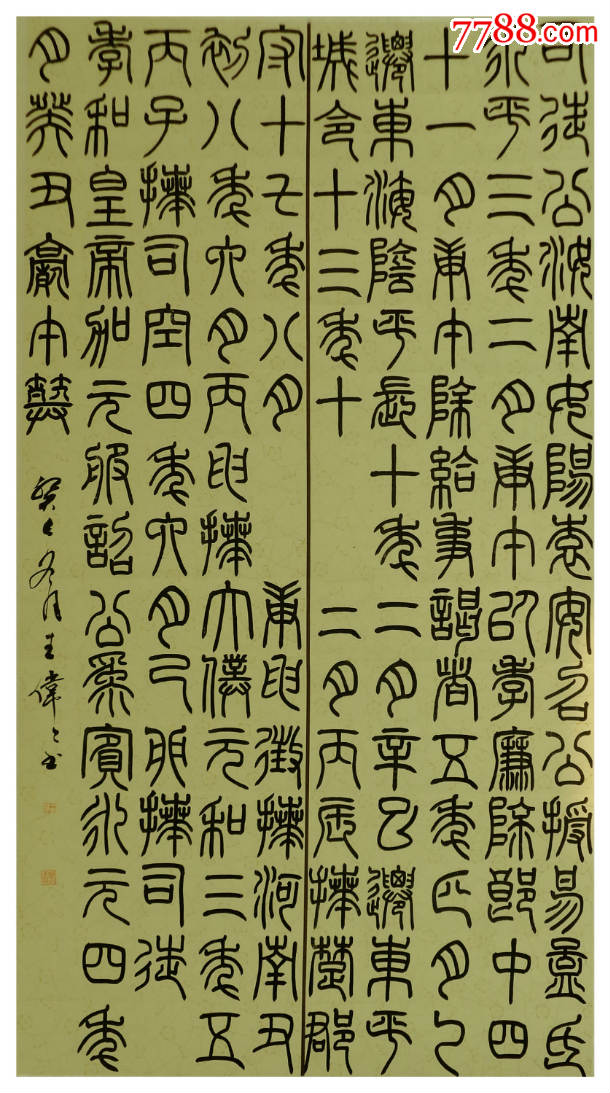 7788.com
司徒公汝南女陽袁安召公授易孟氏
永平三年二月庚午以孝廉除郎中四
十一月庚午除給事謁者五年正月乙
遷東海陰平長十年二月辛巳遷東平
城令十三年十二月丙辰拜楚郡
守十七年八月庚申徵拜河南尹
初八年六月丙申拜太僕元和三年五
丙子拜司空四年六月己卯拜司徒
孝和皇帝加元服詔公為賓永元四年
月癸丑薨午葬
癸巳冬月王偉書